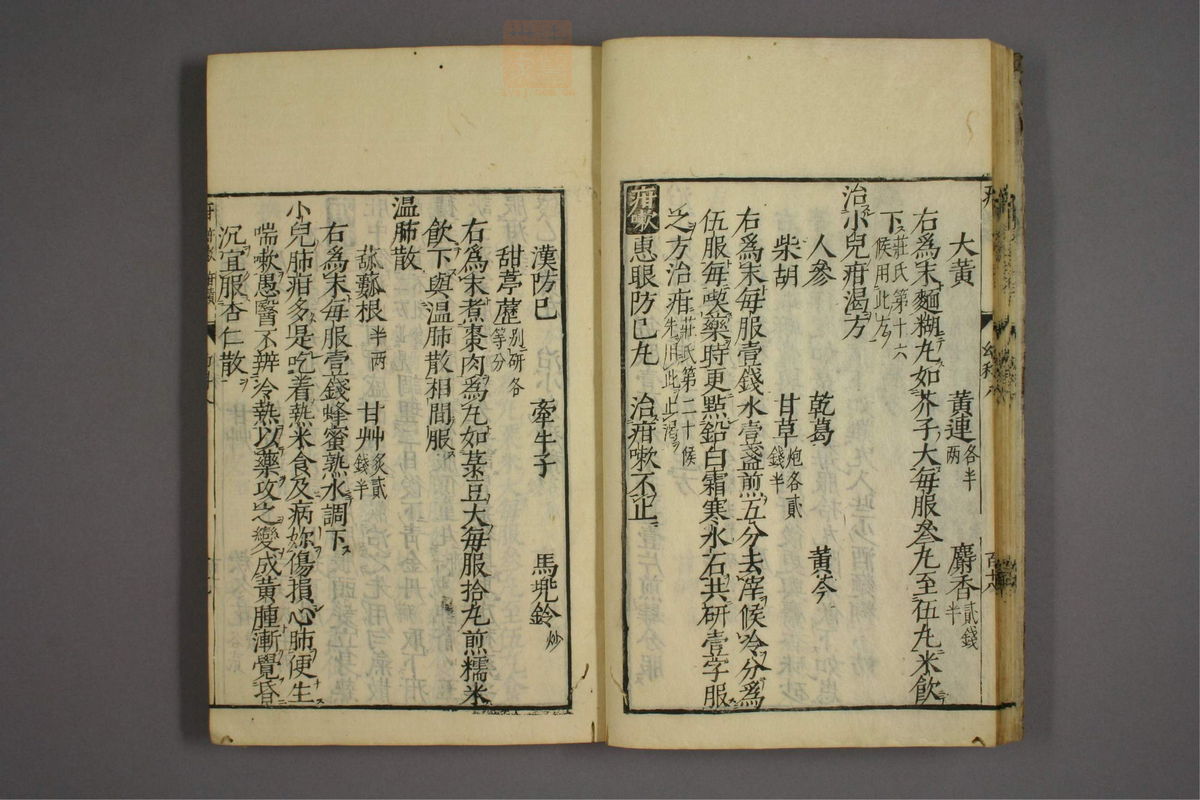 大黃 黃連各半兩 麝香貳錢半
右爲末麵糊丸如芥子大每服叄丸至伍丸米飲
下莊氏第十六候用此方
治小兒疳渴方
人參 乾葛 黃芩
柴胡 甘草炮各貳錢半
右爲末每服壹錢水壹盞煎五分去滓候冷分爲
伍服每喫藥時更點鉛白霜寒水石共研壹字服
之方治疳莊氏第二十候先用此止渴
疳嗽 惠眼防巳丸 治疳嗽不止
漢防巳 牽牛子 馬兜鈴炒
甜葶藶别研各等分
右爲末煮棗肉爲丸如菉豆大每服拾丸煎糯米
飲下與温肺散相間服
温肺散
瓜蔞根半兩 甘艸炙貳錢半
右爲末每服壹錢蜂蜜熟水調下
小兒肺疳多是吃着熱米食及病妳傷損心肺便生
喘嗽愚醫不辨冷熱以藥攻之變成黃腫漸覺昏
沉宜服杏仁散